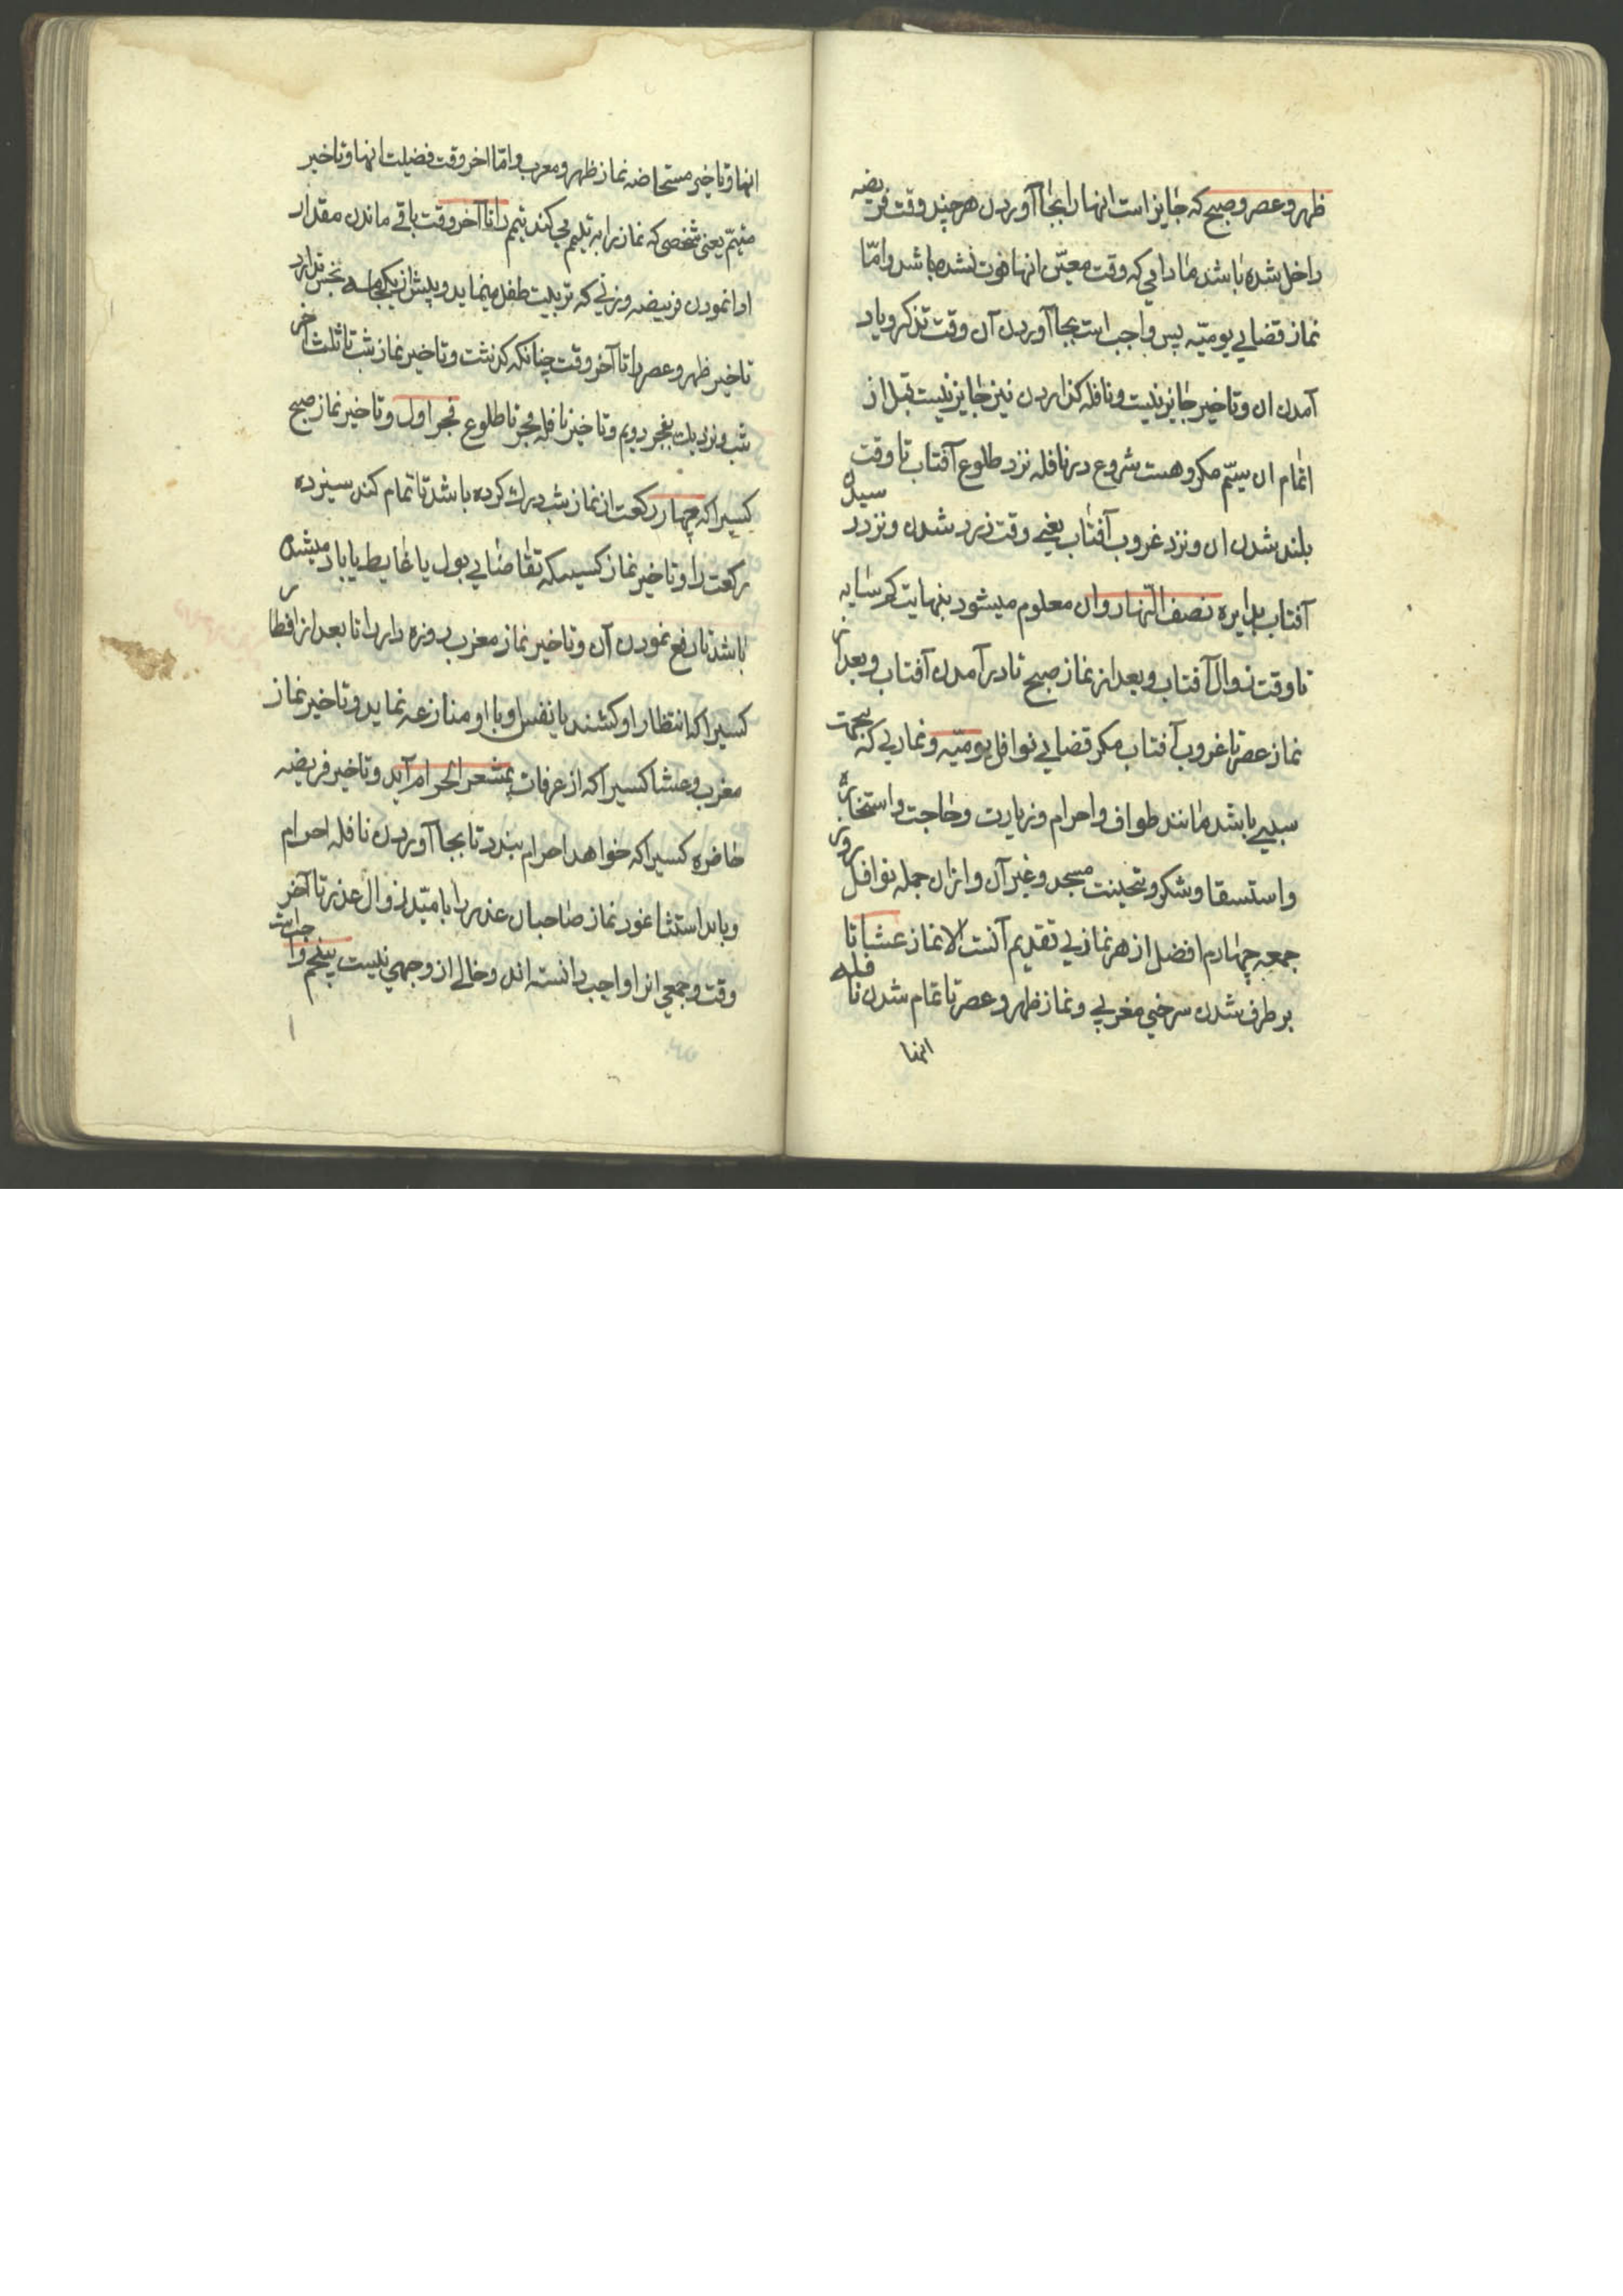 ظهر و عصر و صبح که جایز است انها را بجا آوردن هر چند وقت فریضه
داخل شده باشد مادامی که وقت معیّن انها فوت نشده باشد و امّا
نماز قضایی یومیّه پس واجب است بجا آوردن آن وقت تذکر و یاد
آمدن ان و تاخیر جایز نیست و نافله کذاردن نیز جایز نیست قبل از
اتمام ان سیّم مکروهست شروع در نافله نزد طلوع آفتاب تا وقت
بلند شدن ان و نزد غروب آفتاب یعنی وقت زرد شدن و نزد رسیدن
آفتاب بدایره نصف النّهار و ان معلوم میشود بنهایت کم سایه
تا وقت زوال آفتاب و بعد از نماز صبح تا در آمدن آفتاب و بعد از
نماز عصر تا غروب آفتاب مکر قضایی نوافل یومیّه و نمازیی که بجهت
سببی باشد مانند طواف و احرام و زیارت و حاجت و استخاره
و استسقا و شکر و تحیت مسجد و غیر آن و از ان جمله نوافل روز
جمعه چهارم افضل از هر نمازیی تقدیم آنست الا نماز عشا تا
بر طرف شدن سرخی مغربی و نماز ظهر و عصر تا تمام شدن نافله
انها
انها و تاخیر مستحاضه نماز ظهر و مغرب و امّا اخر وقت فضیلت انها و تاخیر
متیمّم یعنی شخصی که نماز را به تیمم می کند تیمم را تا آخر وقت باقی ماندن مقدار
ادا نمودن فریضه و زنی که تربیت طفل مینماید و پیش از یکجامه نجس ندارد
تاخیر ظهر و عصر را تا آخر وقت چنانکه کذشت و تاخیر نماز شب تا ثلث آخر
شب و نزدیك بفجر دویم و تاخیر نافله فجر تا طلوع فجر اول و تاخیر نماز صبح
کسیرا که چهار رکعت از نماز شب درك کرده باشد تا تمام کند سیزده
رکعت را و تاخیر نماز کسیکه تقاضایی بول یا غایط یا باد میشده
باشد تا رفع نمودن آن و تاخیر نماز مغرب روزه دار را تا بعد از افطار
کسیرا که انتظار او کشند یا نفس او با او منازعه نماید و تاخیر نماز
مغرب و عشا کسیرا که از عرفات بمشعر الحرام آید و تاخیر فریضه
حاضره کسیرا که خواهد احرام بندد تا بجا آوردن نافله احرام
و باید استثنا نمود نماز صاحبان عذر را با امید زوال عذر تا آخر
وقت و جمعی انرا واجب دانسته اند و خالی از وجهی نیست پنجم واجبست